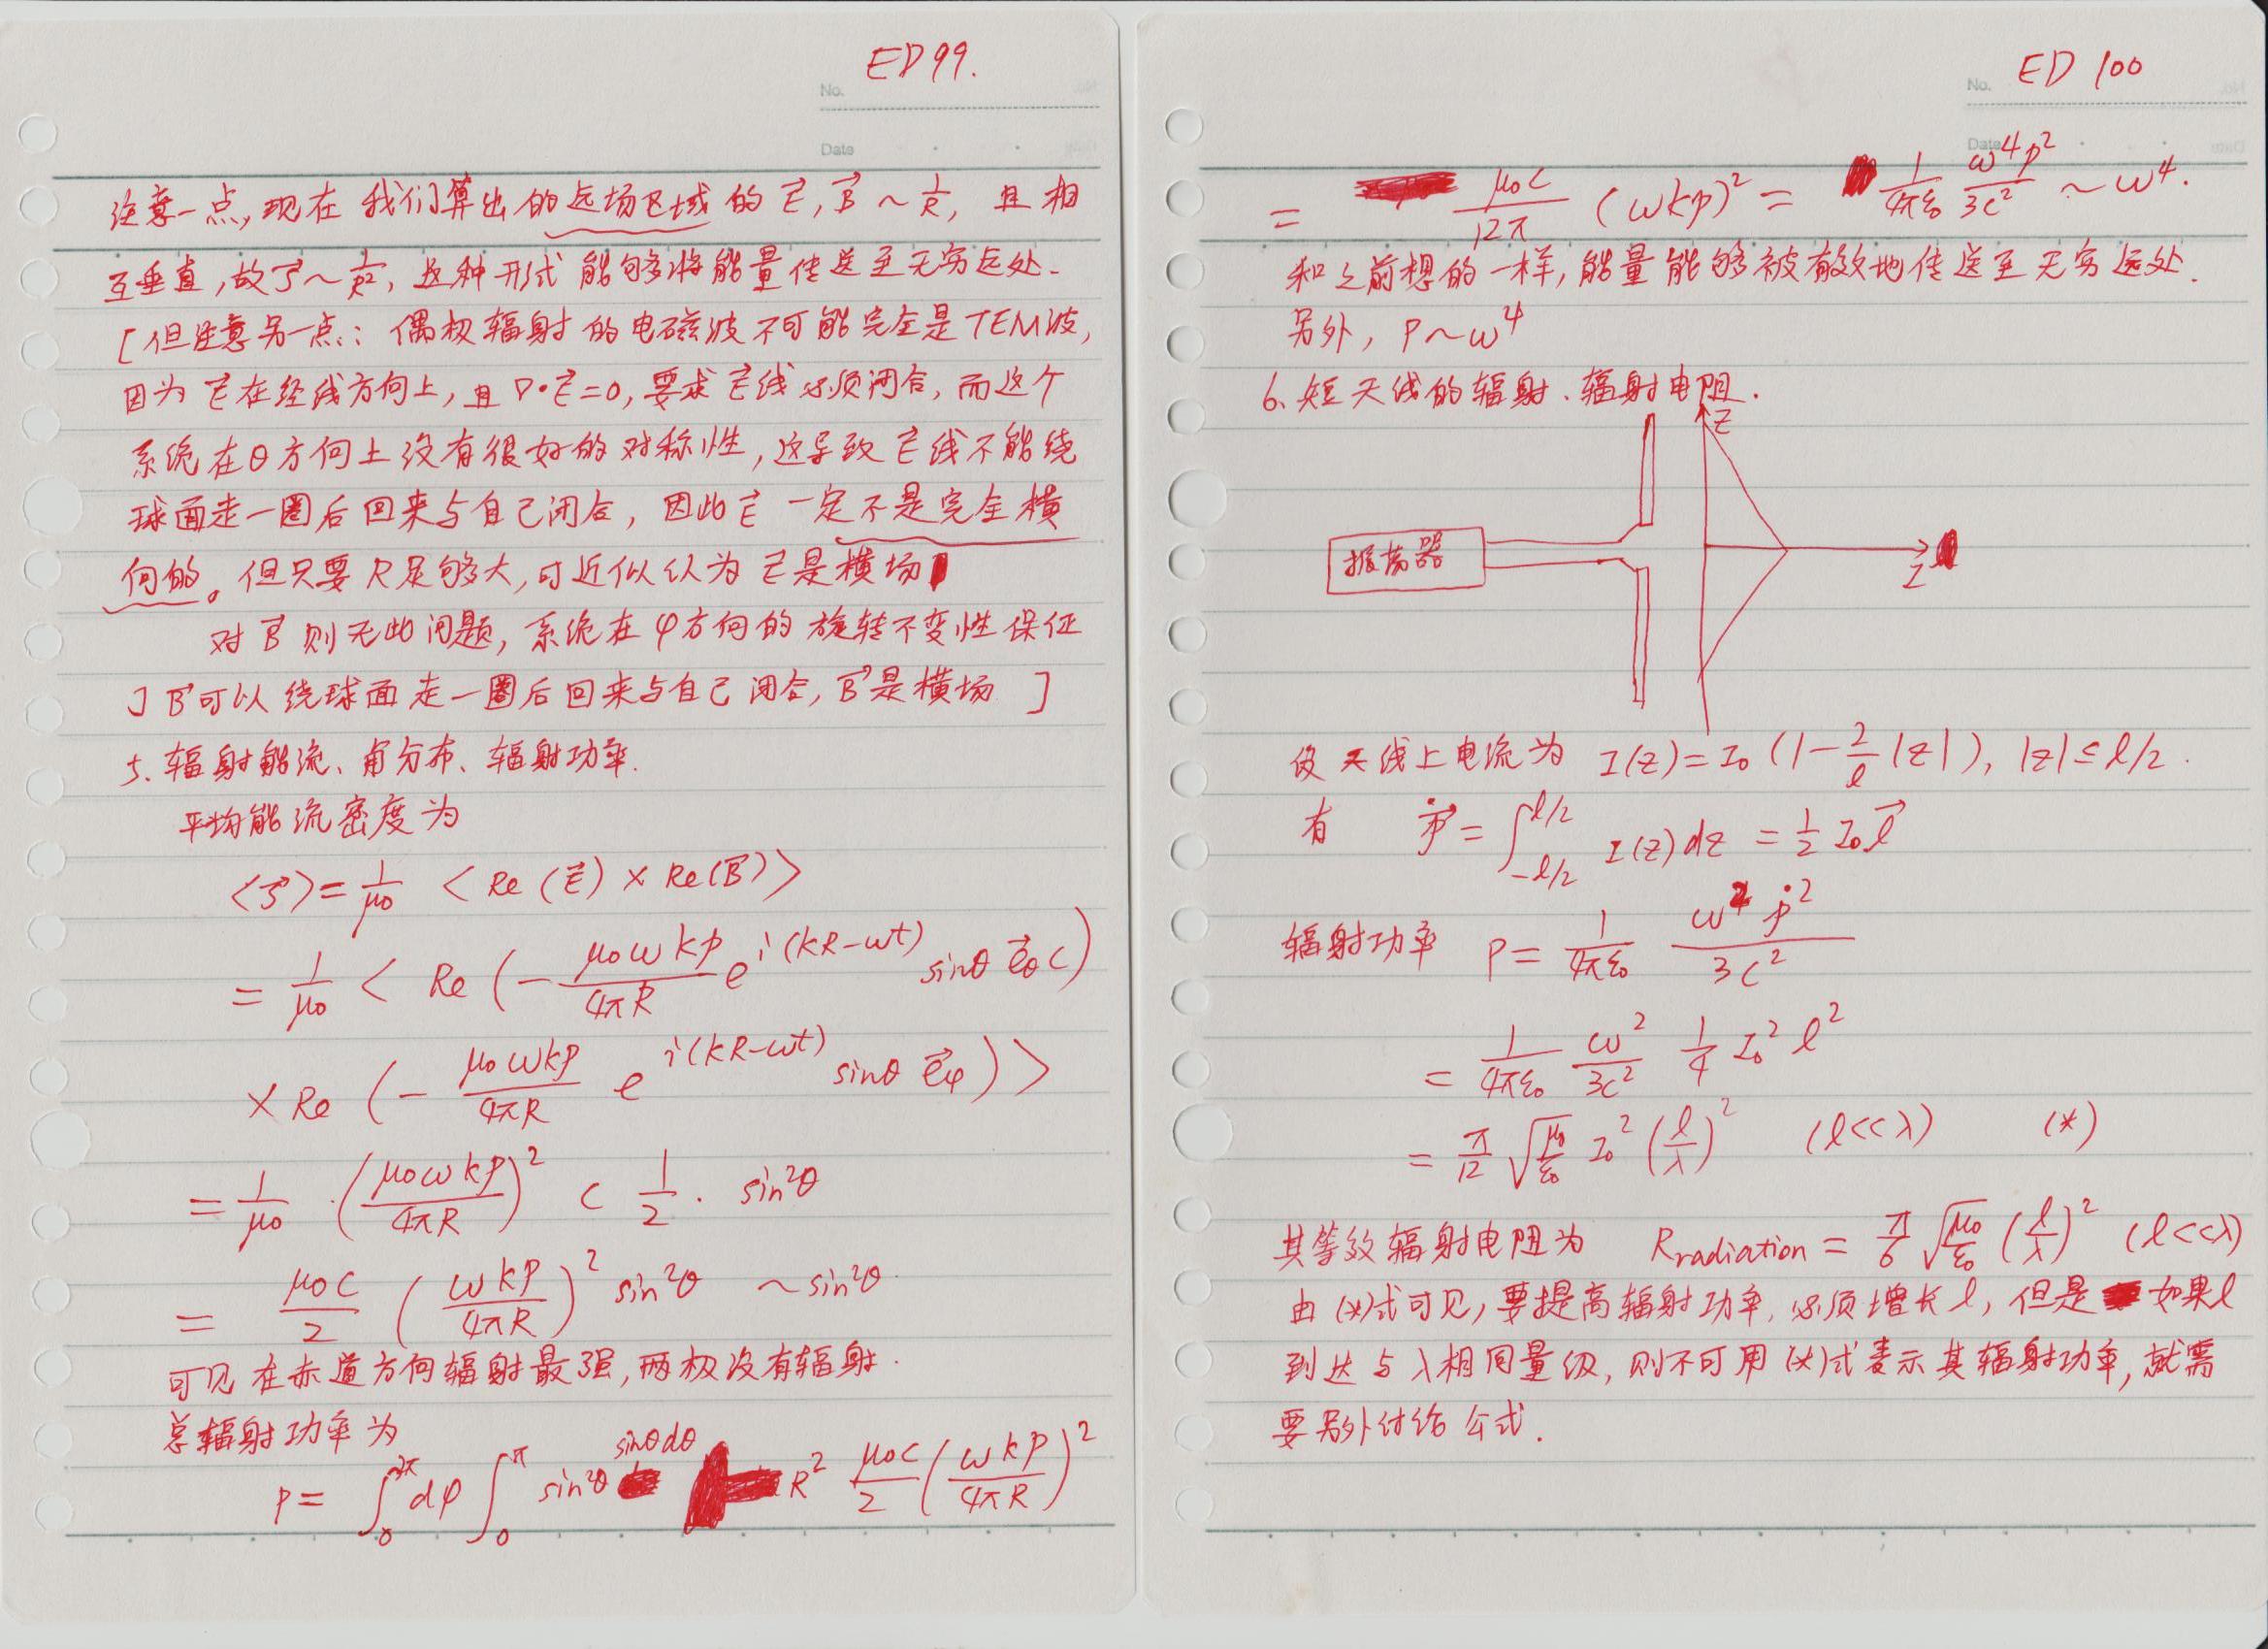 ED 99.
No.
Date
注意一点,现在我们算出的远场区域的 E⃗, B⃗ ~ 1/R, 且相
互垂直,故 S⃗ ~ 1/R², 这种形式能够将能量传送至无穷远处.
[但注意另一点: 偶极辐射的电磁波不可能完全是TEM波,
因为 E⃗ 在经线方向上,且 ∇·E⃗=0,要求 E⃗ 线必须闭合,而这个
系统在θ方向上没有很好的对称性,这导致 E⃗ 线不能绕
球面走一圈后回来与自己闭合,因此 E⃗ 一定不是完全横
向的。但只要R足够大,可近似认为 E⃗ 是横场
对 B⃗ 则无此问题,系统在φ方向的旋转不变性保证
] B⃗ 可以绕球面走一圈后回来与自己闭合, B⃗ 是横场 ]
5. 辐射能流、角分布、辐射功率.
平均能流密度为
<S⃗> = 1/μ₀ <Re(E⃗) × Re(B⃗)>
= 1/μ₀ < Re (- μ₀ωkp/4πR e^{i(kR-ωt)} sinθ e⃗_θ c)
× Re (- μ₀ωkp/4πR e^{i(kR-ωt)} sinθ e⃗_φ) >
= 1/μ₀ · (μ₀ωkp/4πR)² c 1/2 · sin²θ
= μ₀c/2 (ωkp/4πR)² sin²θ ~ sin²θ.
可见在赤道方向辐射最强,两极没有辐射.
总辐射功率为
P = ∫₀^{2π} dφ ∫₀^π sin²θ sinθdθ R² μ₀c/2 (ωkp/4πR)²
ED 100
No.
Date
= μ₀c/12π (ωkp)² = 1/4πε₀ ω⁴p²/3c² ~ ω⁴.
和之前想的一样,能量能够被有效地传送至无穷远处.
另外, P~ω⁴
6. 短天线的辐射、辐射电阻.
z
振荡器
I
设天线上电流为 I(z) = I₀ (1 - 2/l |z|), |z| ≤ l/2.
有 ṗ⃗ = ∫_{-l/2}^{l/2} I(z) dz = 1/2 I₀ l⃗
辐射功率 P = 1/4πε₀ ω² ṗ²/3c²
= 1/4πε₀ ω²/3c² 1/4 I₀² l²
= π/12 √(μ₀/ε₀) I₀² (l/λ)² (l<<λ) (*)
其等效辐射电阻为 Rradiation = π/6 √(μ₀/ε₀) (l/λ)² (l<<λ)
由(*)式可见,要提高辐射功率,必须增长l,但是如果l
到达与λ相同量级,则不可用(*)式表示其辐射功率,就需
要另外讨论公式.